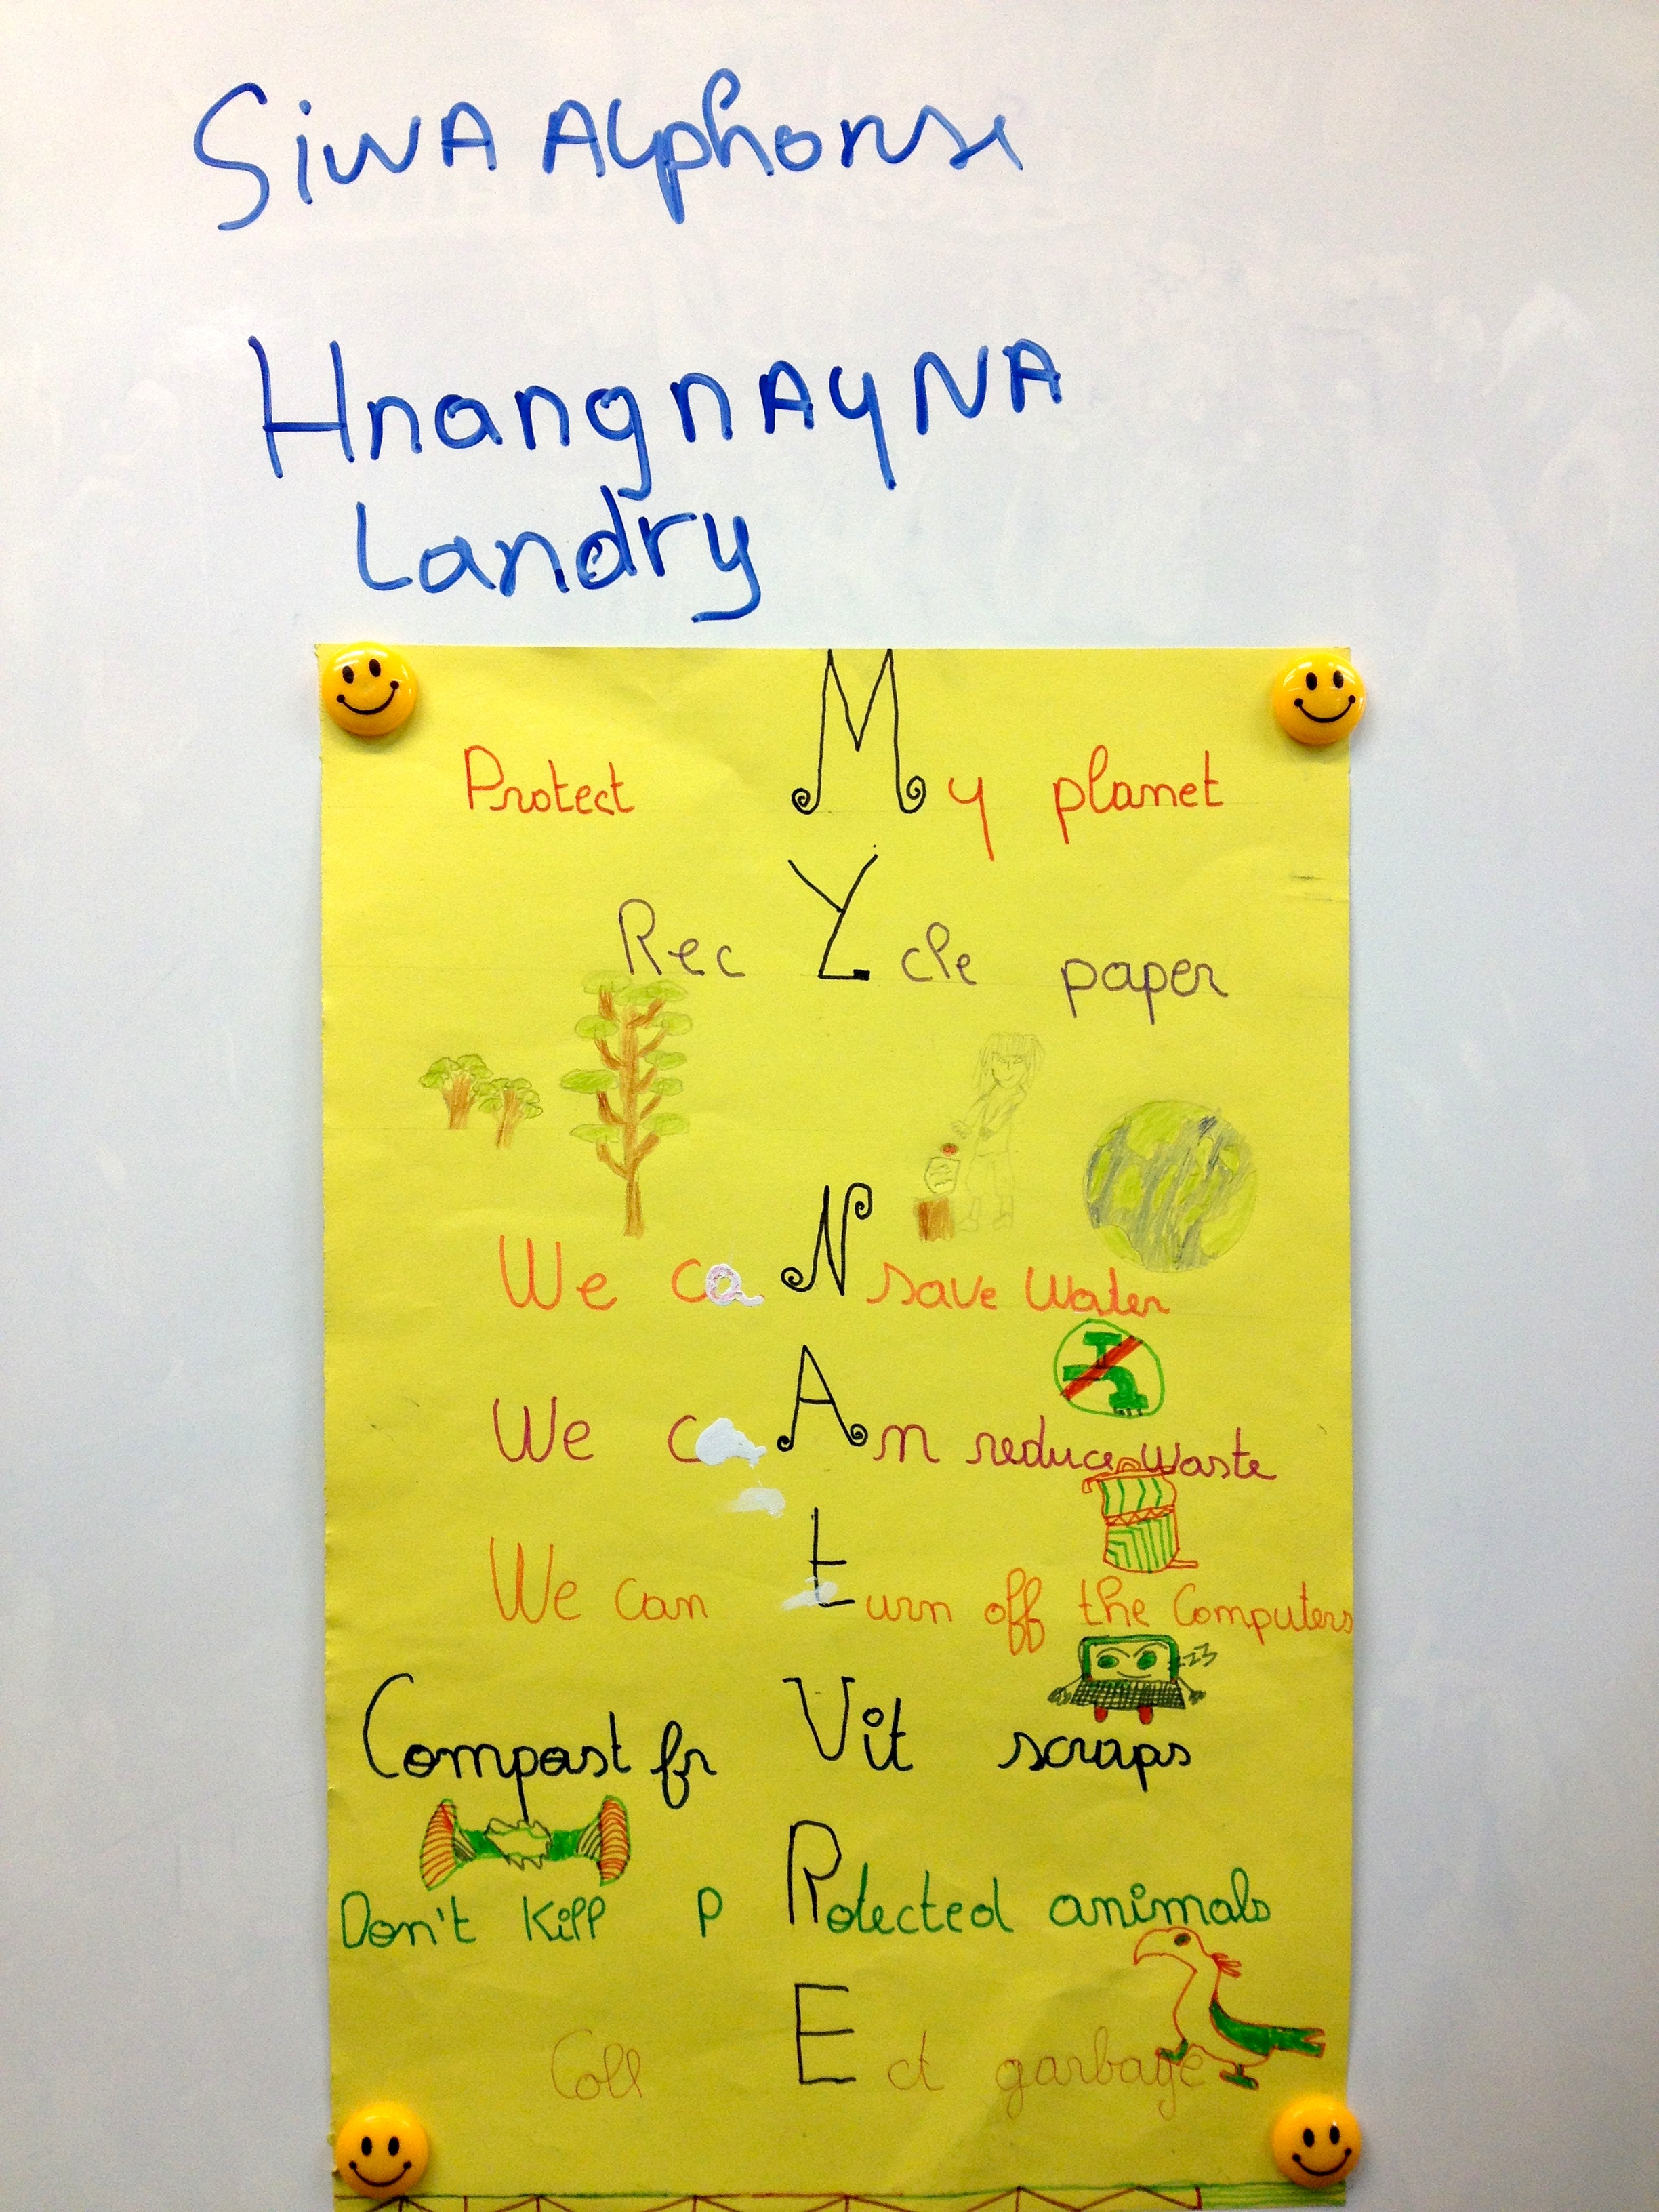 SiWA Alphonse
HnangnAyNA
Landry
Protect My planet
RecYcle paper
We caN save water
We cAn reduce waste
We can turn off the computers
zzz
Compost frVit scraps
Don't kill pRotected animals
CollEct garbage